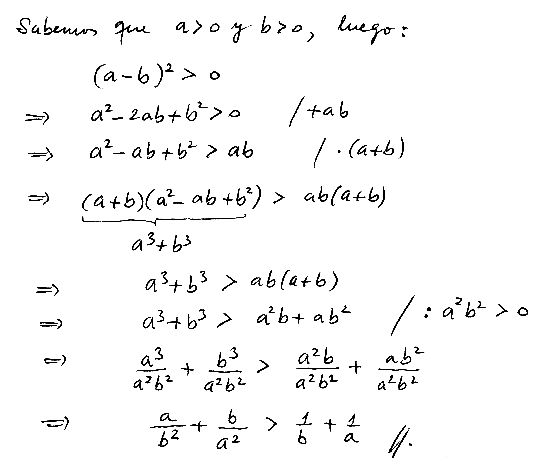 Sabemos que a>0 y b>0, luego:
(a-b)² > 0
⇒ a²-2ab+b²>0 /+ab
⇒ a²-ab+b² > ab /·(a+b)
⇒ (a+b)(a²-ab+b²) > ab(a+b)
a³+b³
⇒ a³+b³ > ab(a+b)
⇒ a³+b³ > a²b+ab² /: a²b²>0
⇒ a³/a²b² + b³/a²b² > a²b/a²b² + ab²/a²b²
⇒ a/b² + b/a² > 1/b + 1/a //.